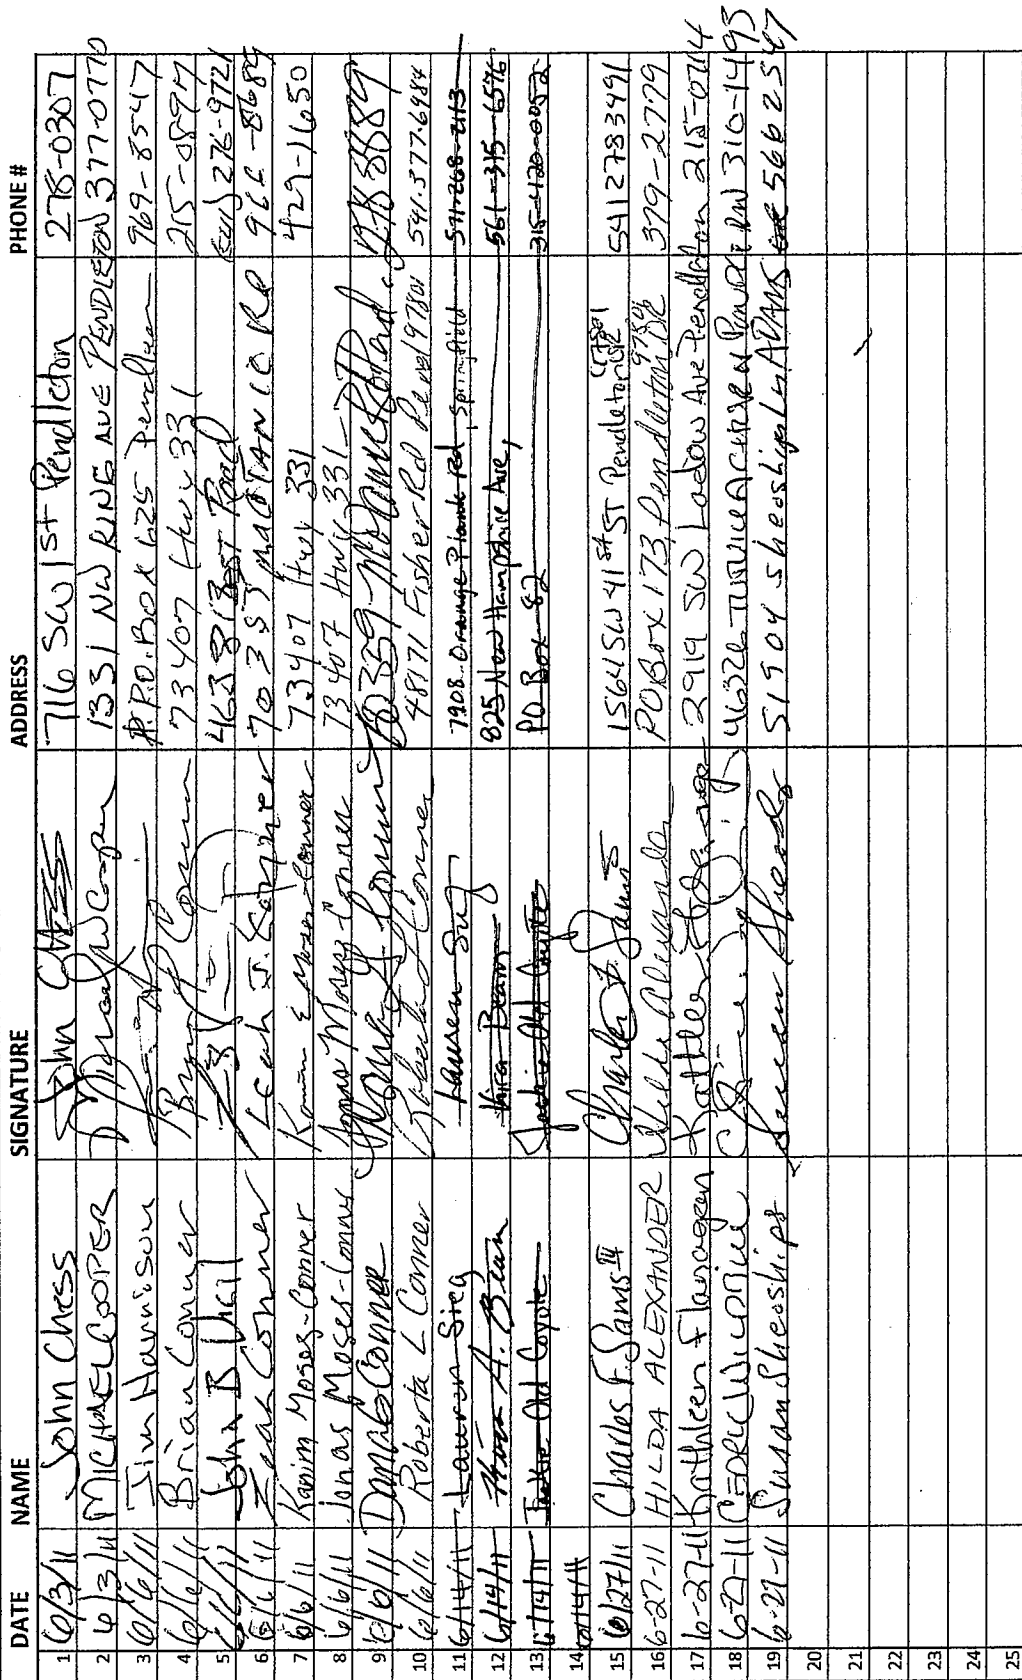 DATE NAME SIGNATURE ADDRESS PHONE #
1 6/3/11 John Chess John Chess 716 SW 1st Pendleton 278-0307
2 6/3/11 MICHAEL COOPER 1331 NW KING AVE PENDLETON 377-0770
3 6/6/11 Jim Harrison P.O. Box 625 Pendleton 969-8547
4 6/6/11 Brian Conner Brian Conner 73407 Hwy 331 215-0897
5 6/6/11 John B 46381 Road 276-9721
6 6/6/11 Leah Conner Leah J. Conner 70353 Rd 966-8689
7 6/6/11 Kanim Moses-Conner Kanim E Moses-Conner 73407 Hwy 331 429-1650
8 6/6/11 Jonas Moses-Conner Jonas Moses-Conner 73407 Hwy 331
9 6/6/11 Conner
10 6/6/11 Roberta L Conner Roberta L Conner 48171 Fisher Rd 97801 541.377.6984
11 6/14/11 Lauren Sieg Lauren Sieg 7908 Orange Plank Rd, Springfield 571-268-2113
12 6/14/11 Kira A. Beam Kira Beam 825 New Hampshire Ave, 561-315-6576
13 6/14/11 Jackie Old Coyote Jackie Old Coyote PO Box 82 315-420-0052
14 6/14/11
15 6/27/11 Charles F. Sams III Charles F. Sams 1564 SW 41st ST Pendleton OR 97801 541 278 3491
16 6-27-11 HILDA ALEXANDER Hilda Alexander PO Box 173, Pendleton OR 379-2779
17 6-27-11 Kathleen Flanagan Kathleen Flanagan 2919 SW Ladow Ave Pendleton 215-0714
18 6-27-11 CEDRIC WILDBILL 46326 310-1493
19 6-27-11 Susan Sheoships Susan Sheoships 51904 Sheoships ADAMS 566 2547
20
21
22
23
24
25